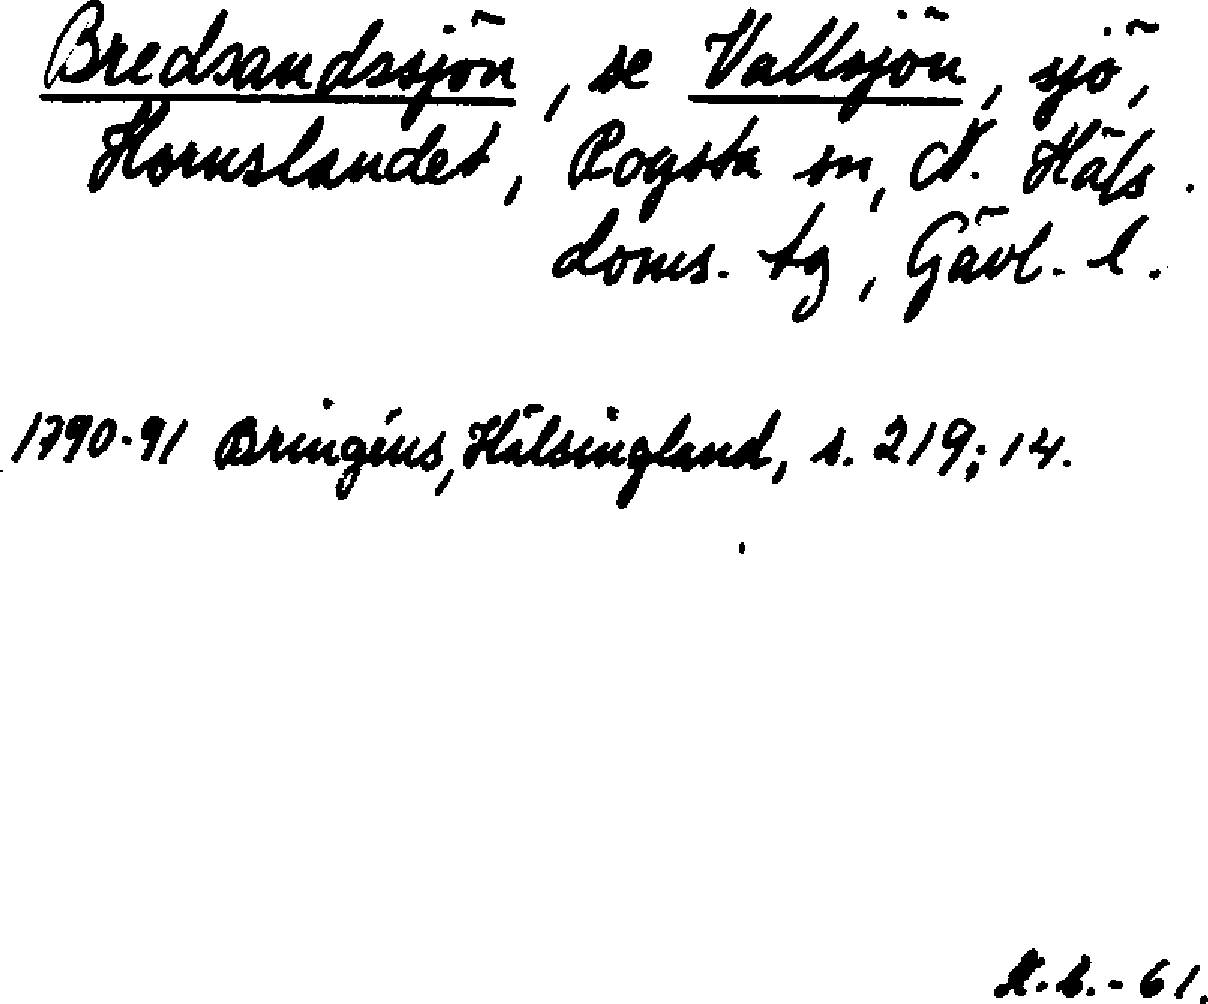 Bredsandssjön, se Vallsjön, sjö,
Hornslandet, Rogsta sn, N. Häls.
doms. tg, Gävl. l.
1790-91 Bringéus, Hälsingland, s. 219; 14.
-61.